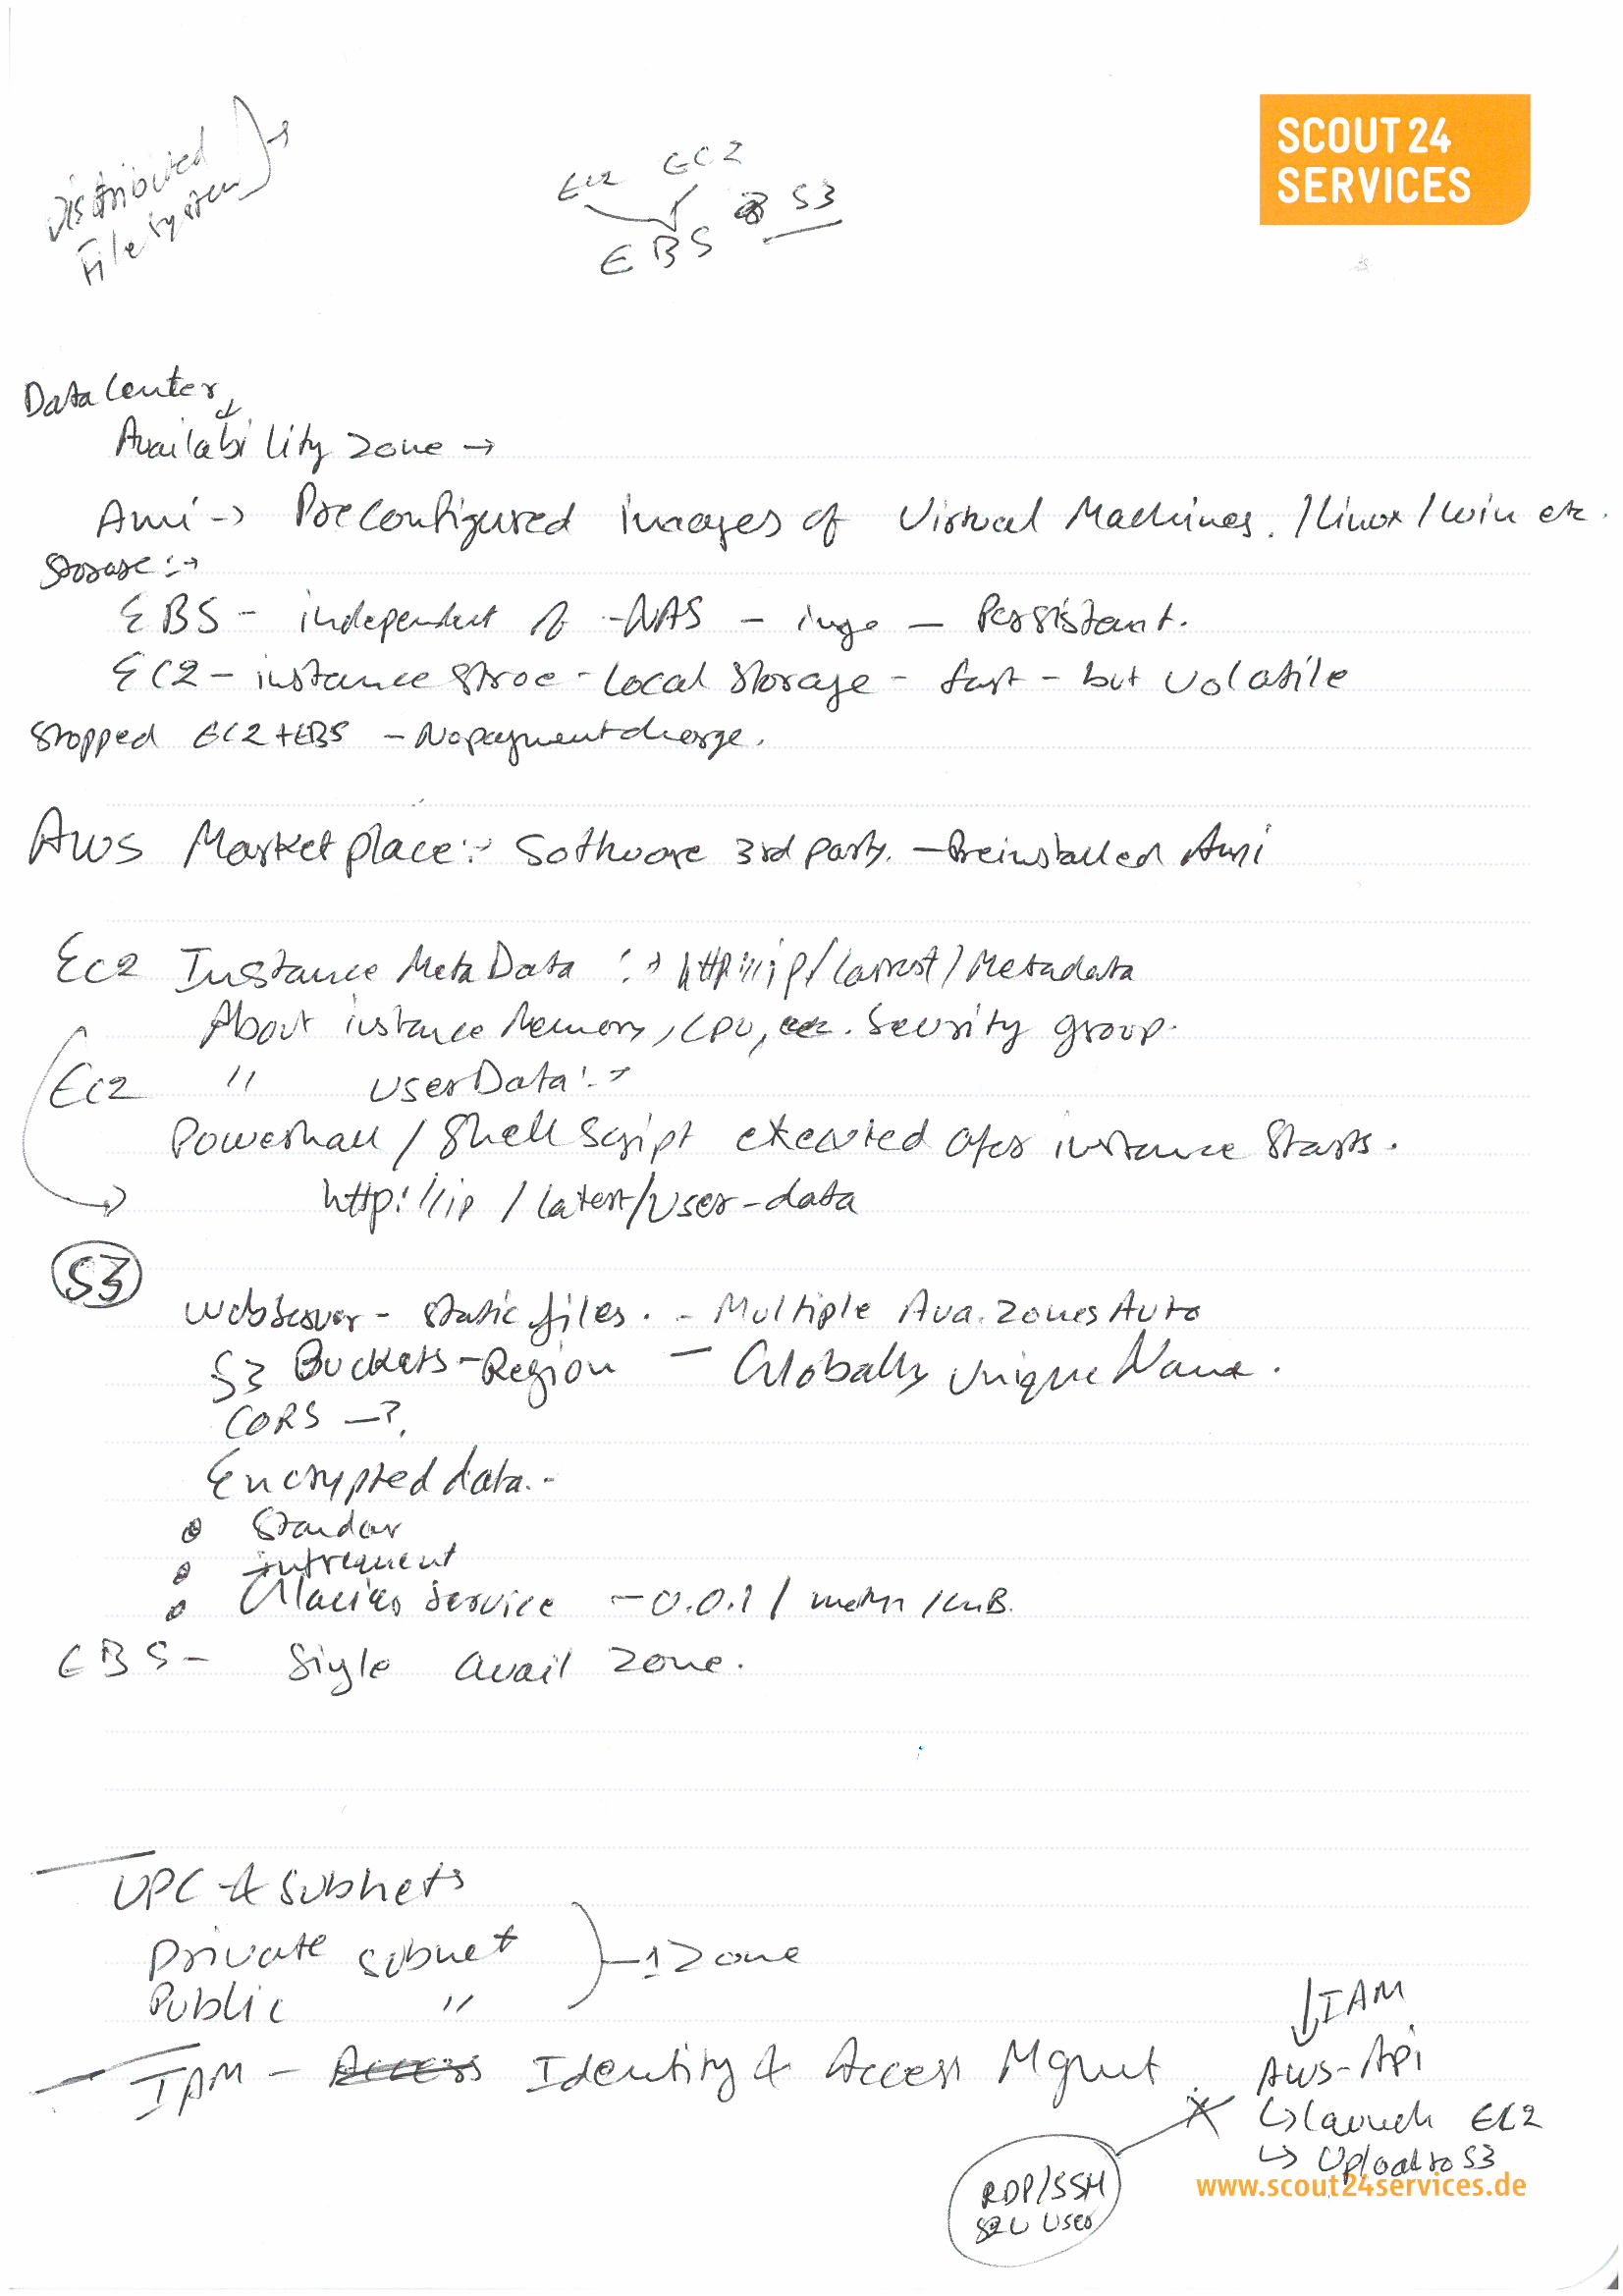 SCOUT 24
SERVICES
Distributed
File System
EC2 EC2
EBS S3
Data Center
Availability zone →
Ami → Preconfigured images of Virtual Machines. / Linux / win etc.
Storage :→
EBS - independent of - NAS - - Persistant.
EC2 - instance stroe - Local Storage - fast - but volatile
Stopped EC2 + EBS - No payment charge.
AWS Market place :- Software 3rd party. - Preinstalled Ami
EC2 Instance Meta Data :→ http://ip/latest/Metadata
About instance Memory, CPU, etc. Security group.
EC2 " userData :→
Powershall / Shell Script executed after instance starts.
http://ip / latest/user-data
S3
Webserver - static files. - Multiple Ava. zones Auto
S3 Buckets - Region - Globally Unique Name.
CORS -?.
Encrypted data.-
Standar
infrequent
Glacier Service - 0.0.1 /
EBS - Sigle avail zone.
VPC & Subnets
Private subnet - 1 Zone
Public "
IAM - Access Identity & Access Mgmt
↓ IAM
AWS - Api
↳ launch EC2
↳ Upload to S3
RDP/SSH
User
www.scout24services.de